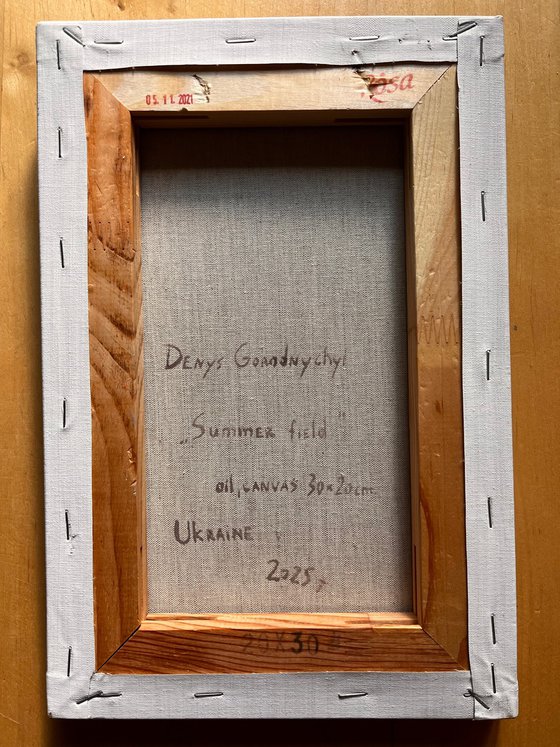 05.11.2021
Rosa
Denys Gorodnychyi
„Summer field"
oil, canvas 30×20cm
Ukraine
2025,
20X30